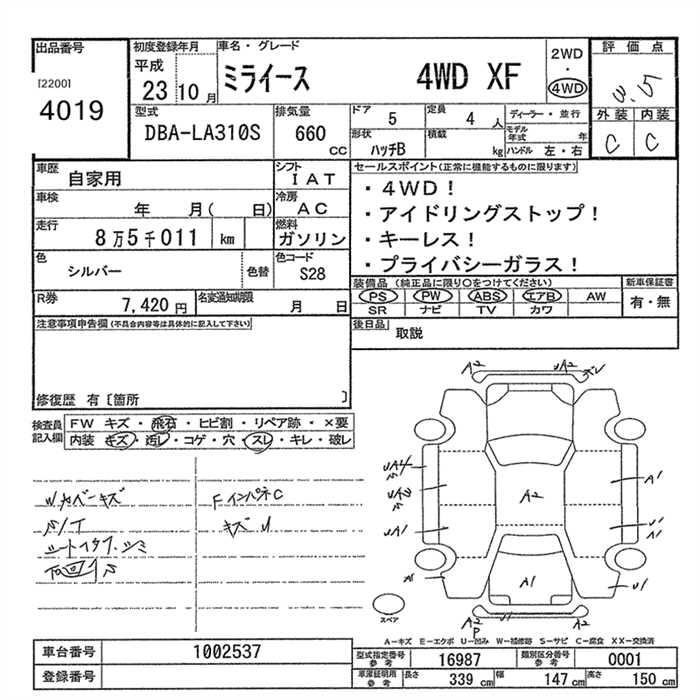 出品番号
[2200]
4019
初度登録年月
平成
23 10 月
車名・グレード
ミライース 4WD XF
2WD
・
4WD
評価点
3.5
外装 内装
C C
型式
DBA-LA310S
排気量
660
CC
ドア
5
定員
4 人
ディーラー・並行
形状
ハッチB
積載
kg
モデル年式 年
ハンドル 左・右
車歴
自家用
シフト
IAT
車検
年 月( 日)
冷房
AC
走行
8万5千011 km
燃料
ガソリン
色
シルバー
色替
色コード
S28
R券
7,420 円
名変通知期限
月 日
セールスポイント(正常に機能するものに限ります)
・4WD！
・アイドリングストップ！
・キーレス！
・プライバシーガラス！
装備品 (純正品に限り○をつけてください)
PS PW ABS エアB AW
SR ナビ TV カワ
新車保証書
有・無
後日品
取説
注意事項申告欄(不具合内容等は具体的に記入して下さい)
修復歴 有〔箇所 〕
検査員記入欄
FW キズ・飛石・ヒビ割・リペア跡・×要
内装 キズ・汚レ・コゲ・穴・スレ・キレ・破レ
Wカバーキズ
S/T
シートイタフ.シミ
下回りS
FインパネC
キズU
A2
A2
A2
A1
A1
A1
U1
A1
U1
U1
A2
P
スペア
A－キズ E－エクボ U－凹み W－補修跡 S－サビ C－腐食 XX－交換済
車台番号
1002537
登録番号
型式指定番号
参考
16987
類別区分番号
参考
0001
車庫証明用
参考
長さ 339 cm 幅 147 cm 高さ 150 cm